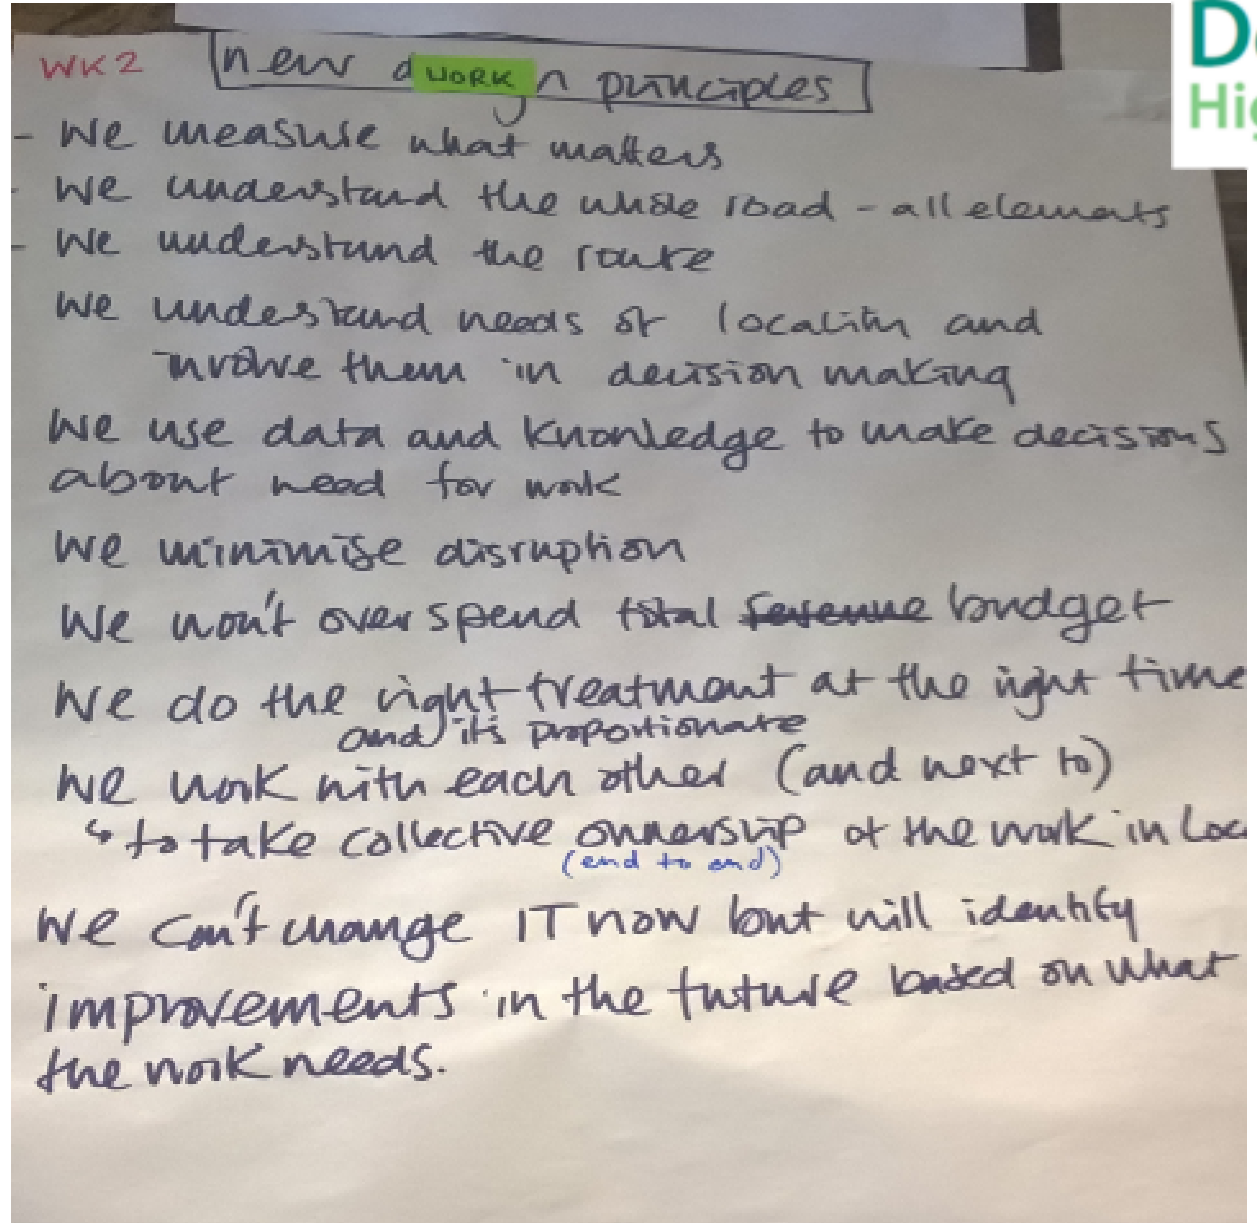 WK2 new d WORK n principles
- We measure what matters
- We understand the whole road - all elements
- We understand the route
We understand needs of locality and
involve them in decision making
We use data and knowledge to make decisions
about need for work
We minimise disruption
We won't overspend total revenue budget
We do the right treatment at the right time
and it's proportionate
We work with each other (and next to)
↳ to take collective ownership of the work in Loc
(end to end)
We can't change IT now but will identify
improvements in the future based on what
the work needs.
D
Hig